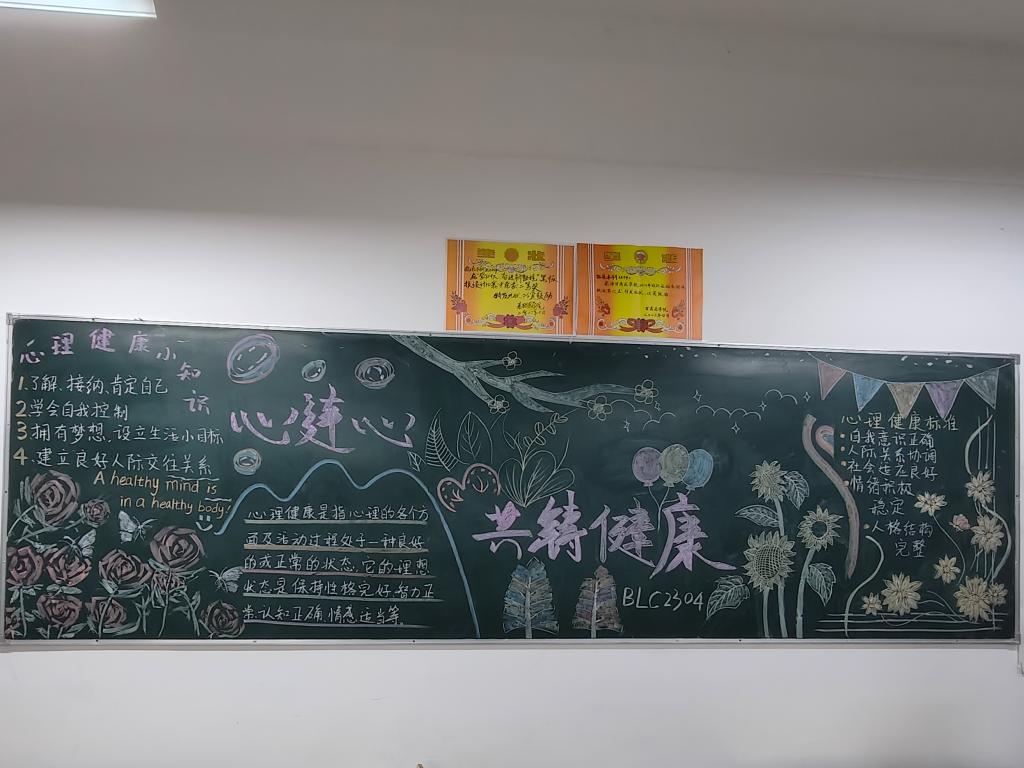 奖状
奖状
心理健康小知识
1.了解、接纳、肯定自己
2学会自我控制
3拥有梦想、设立生活小目标
4.建立良好人际交往关系
A healthy mind is
in a healthy body!
心连心
心理健康是指心理的各个方
面及活动过程处于一种良好
的或正常的状态.它的理想
状态是保持性格完好.智力正
常、认知正确、情感适当等.
共铸健康
BLC2304
心理健康标准
·自我意识正确
·人际关系协调
·社会适应良好
·情绪积极
稳定
·人格结构
完整